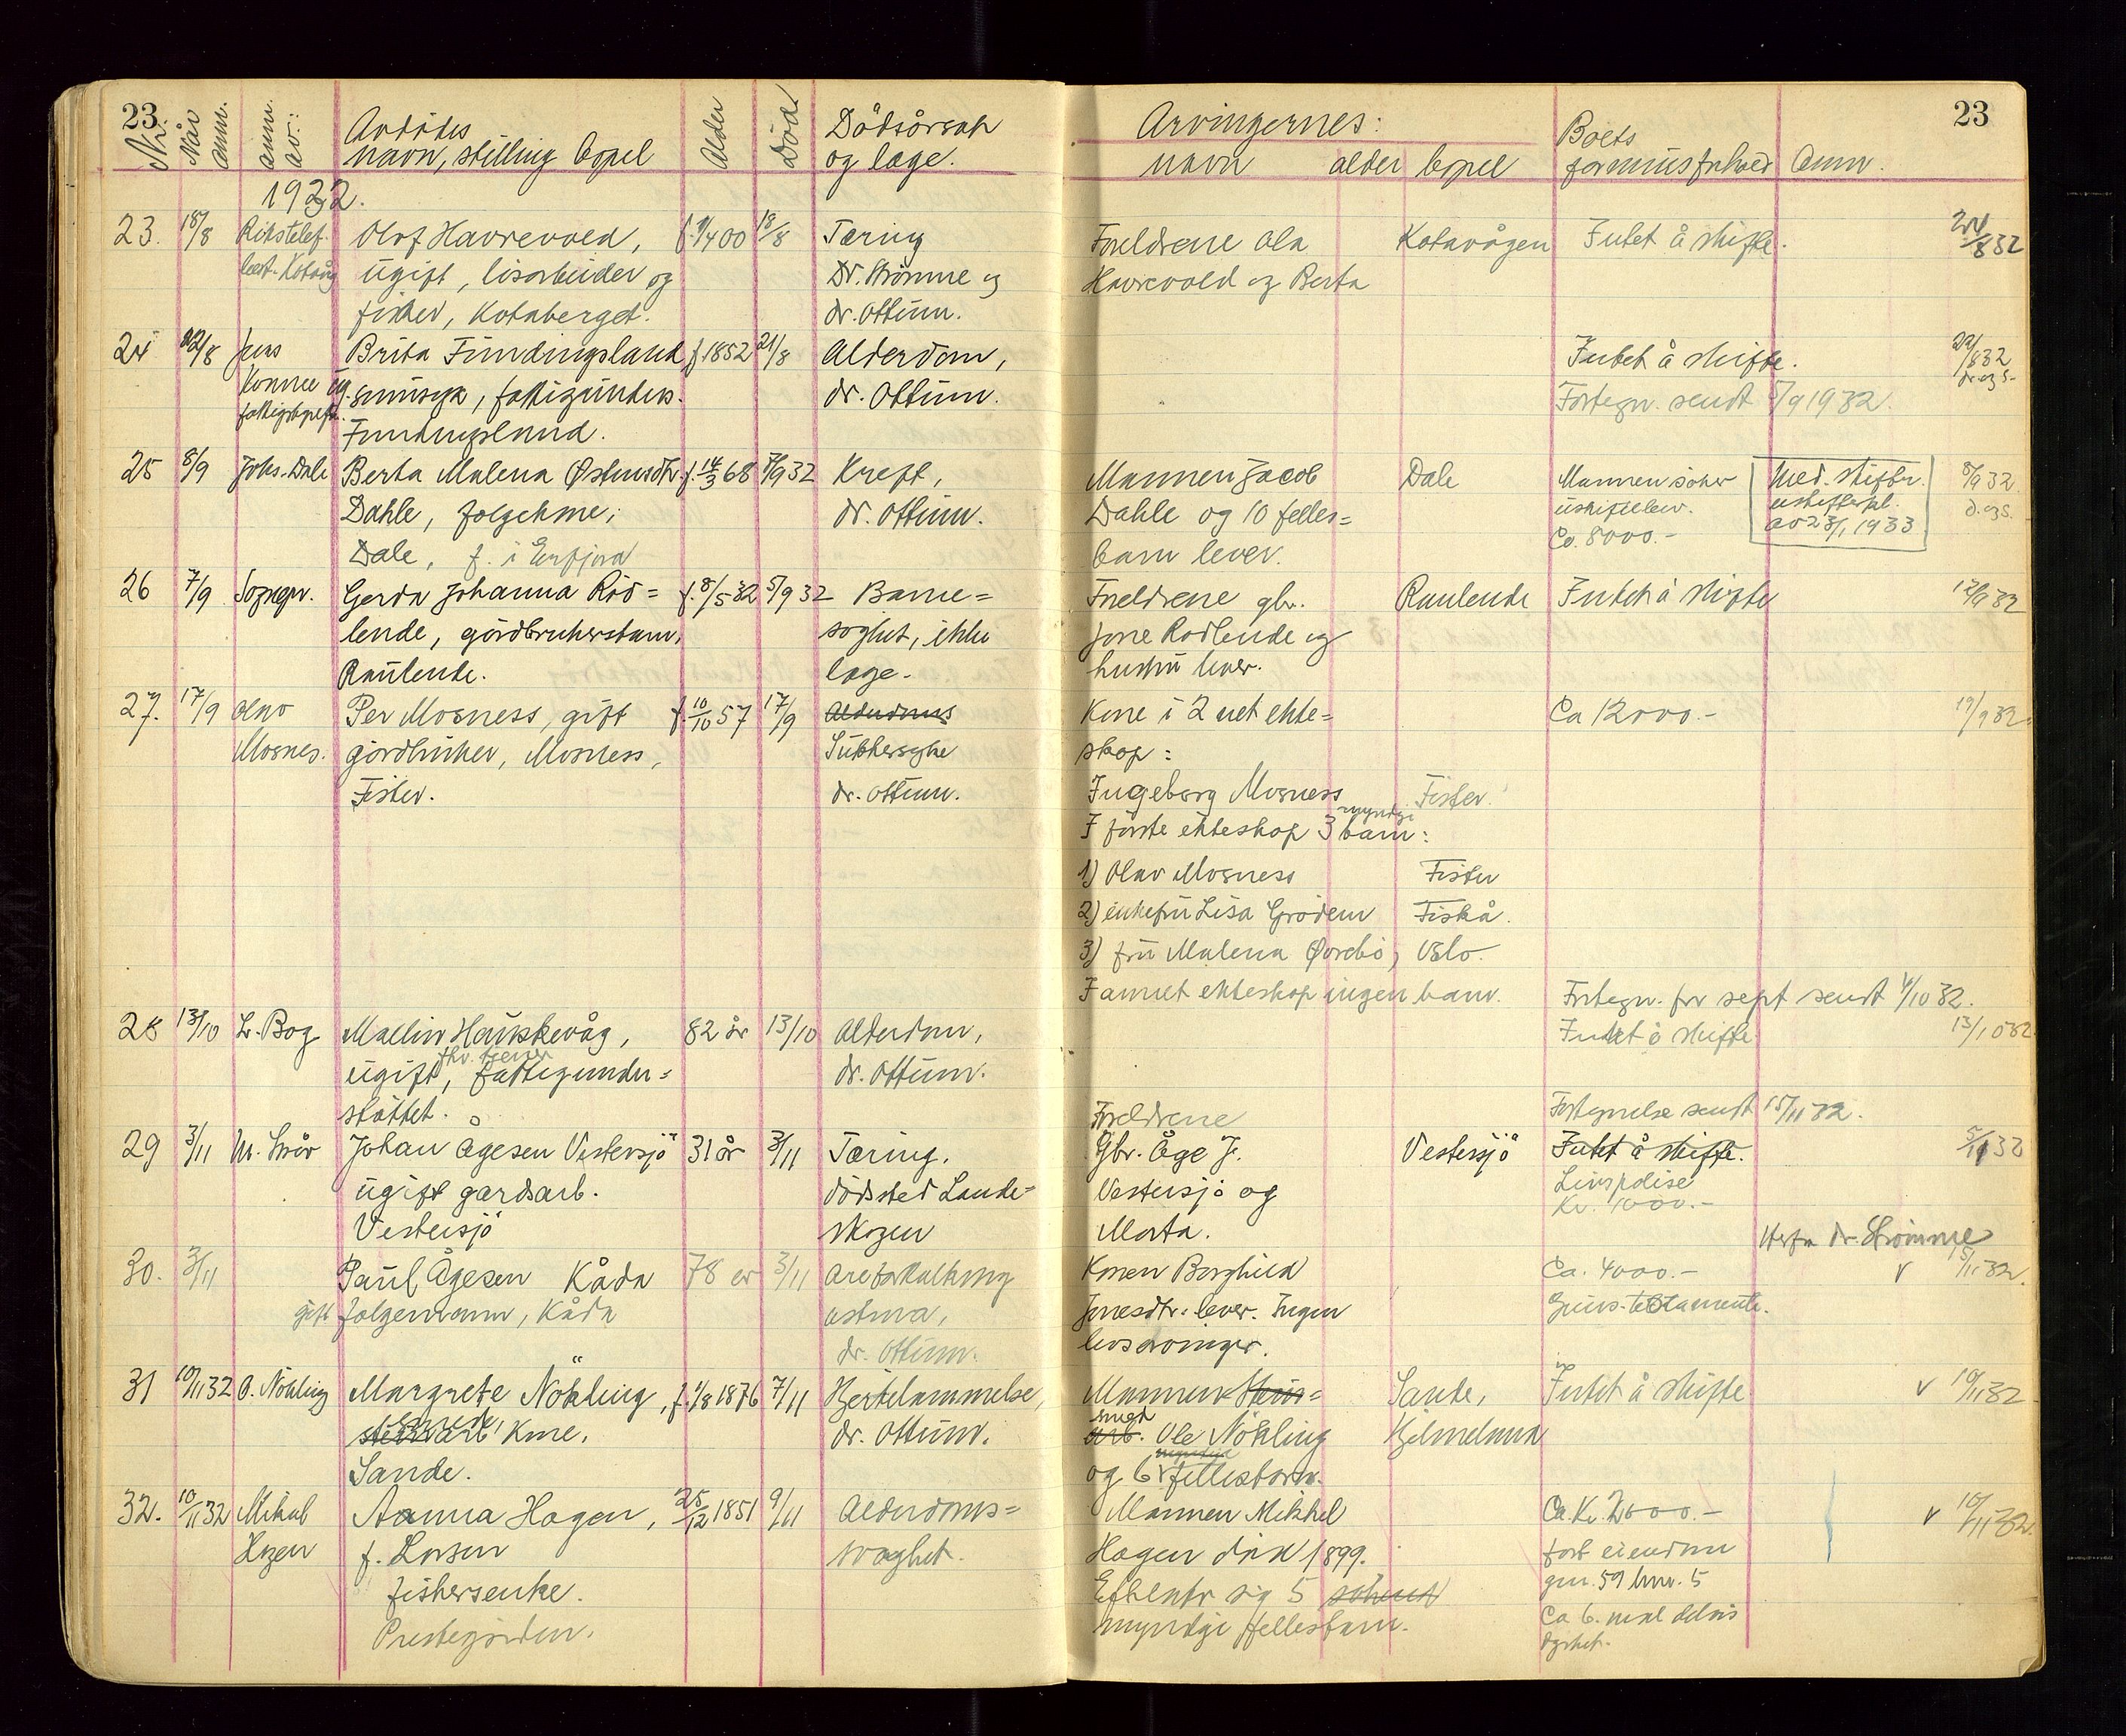 23.
Nr.
Når anm.
anm. av.:
Avdödes
navn, stilling bopel
Alder
Död
Dödsårsak
og læge.
1932.
23. 18/8 Rikstelef. Olof Havrevold, f. 9/4 00 18/8 Tæring
best. Kotvåg ugift, lisarbeider og Dr. Strömme og
fisker, Kotaberget. dr. Ottum.
24 22/8 Jens Brita Fundingsland f. 1852 21/8 Alderdom,
ug. fattigunders. dr. Ottum.
Fundingsland.
25 8/9 Johs. Dale Berta Malena Østensdtr. f. 14/3 68 7/9 32 Kreft,
Dahle, folgekone, dr. Ottum.
Dale, f. i Erfjord
26 7/9 Sognepr. Gerda Johanna Röd=
lende, gårdbrukerbarn, f. 8/5 32 5/9 32 Barne=
svaghet, ikke
Raulende. læge.
27. 17/9 Olav Per Mosness, gift f. 10/10 57 17/9 Alderdoms
Mosnes. gårdbruker, Mosness, Sukkersyke
Fister. dr. Ottum.
28 13/10 L. Bog Mallin Hauskevåg, 82 år 13/10 Alderdom,
fhv. tjener
ugift, fattigunder= dr. Ottum.
støttet.
29 3/11 Johan Ågesen Vestersjö 31 år 3/11 Tæring.
ugift gardsarb. dödsted Lande=
Vestersjö skogen
30. 3/11 Paul Ågesen Kåda 78 år 3/11 Areforkalkning
gift folgemann, Kåda astma,
dr. Ottum.
31 10/11 32 O. Nökling Margrete Nökling, f. 1/8 1876 7/11 Hjertelammelse,
smed
stenarb. kone. dr. Ottum.
Sande.
32. 10/11 32 Mikal Aanna Hagen, 25/12 1851 9/11 Alderdoms=
Hagen f. Larsen svaghet.
fiskersenke.
Prestegården.
23
Arvingernes:
navn alder bopel
Boets
formuesforhold Anm.
Foreldrene Ola Kotavågen Intet å skifte. 24/8 32
Havrevold og Berta
Intet å skifte. 22/8 32
Fortegn. sendt 5/9 1932.
Mannen Jacob Dale Mannen söker Med. skiftr. 8/9 32
Dahle og 10 felles= uskiftebev. uskiftebevil.
barn lever. Ca. 8000.- av 23/1 1933
Foreldrene gbr. Raulende Intet å skifte 12/9 32
Jone Rodlende og
hustru lever.
Kone i 2net ekte= Ca 12000.- 19/9 32
skap:
Ingeborg Mosness Fister.
myndige
I förste ekteskap 3 barn:
1) Olav Mosness Fister
2) enkefru Lisa Grödem Fiskå.
3) fru Malena Øvrebö, Oslo.
I annet ekteskap ingen barn. Fortegn. for sept sendt 4/10 32.
Intet å skifte 13/10 32
Fortegnelse sendt 15/11 32.
Foreldrene
Gbr. Åge J. Vestersjö Intet å skifte. 5/11 32
Vestersjö og Livspolise
Marta. Kr. 1000.-
dr. Strömme
Konen Borghild Ca. 4000.- v 15/11 32.
Jonesdtr. lever. Ingen Gjens. testamente.
livsarvinger.
Mannen Sten= Sande, Intet å skifte v 10/11 32
smed
arb. Ole Nökling Hjelmeland
myndige
og 6 fellesbarn.
Mannen Mikkel Ca. Kr. 2000.- v 10/11 32.
Hagen död 1899. fast eiendom
Efterlatr sig 5 sönner gnr. 59 bnr. 5
myndige fellesbarn. Ca 6. mål delvis
dyrket.